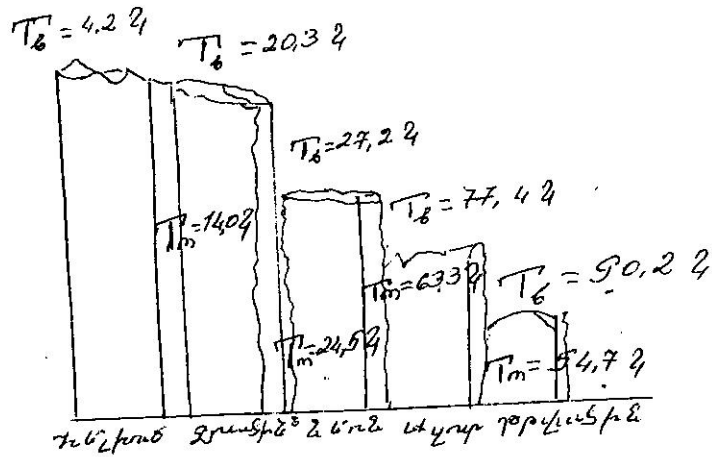 T_b = 4,2 Կ
T_b = 20,3 Կ
T_b = 27,2 Կ
T_b = 77,4 Կ
T_b = 90,2 Կ
T_m = 14,0 Կ
T_m = 63,3 Կ
T_m = 24,5 Կ
T_m = 54,7 Կ
Հելիում Ջրածին Նեոն Ազոտ Թթվածին